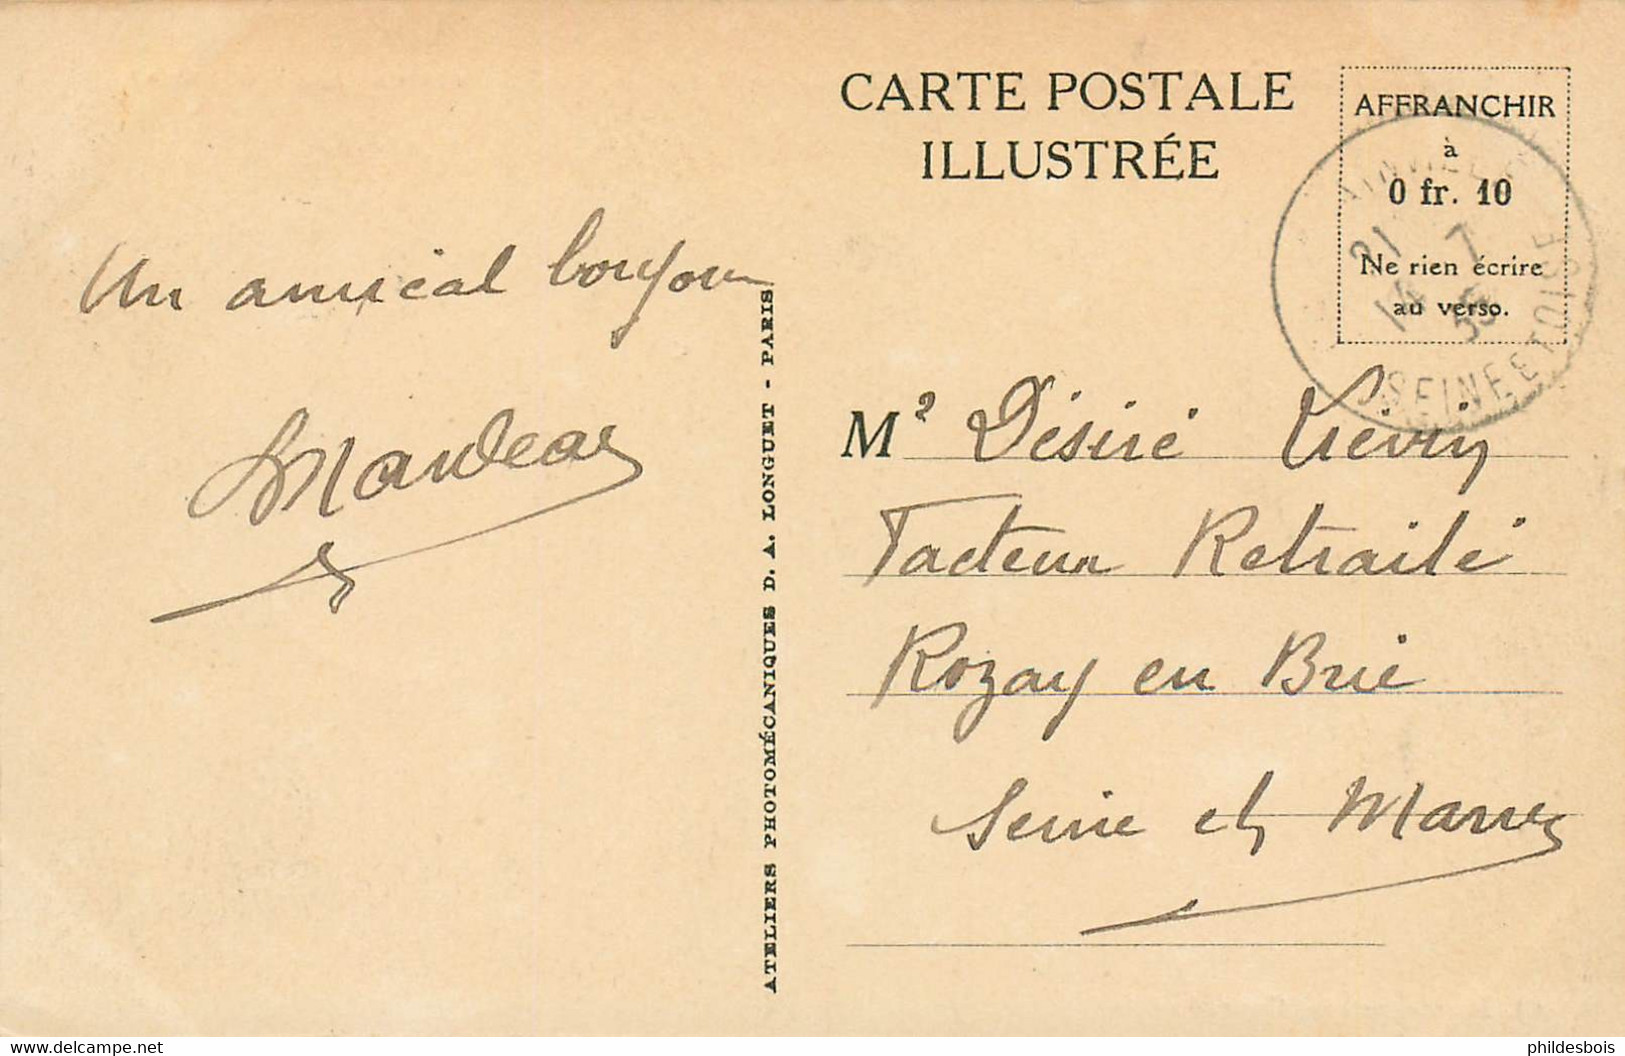 CARTE POSTALE
ILLUSTRÉE
AFFRANCHIR
à
0 fr. 10
Ne rien écrire
au verso.
21 7
14 35
SEINE ET OISE
Un amical bonjour
ATELIERS PHOTOMÉCANIQUES D. A. LONGUET - PARIS
M^r Désiré Liévin
Facteur Retraité
Rozay en Brie
Seine et Marne
delcampe.net
phildesbois